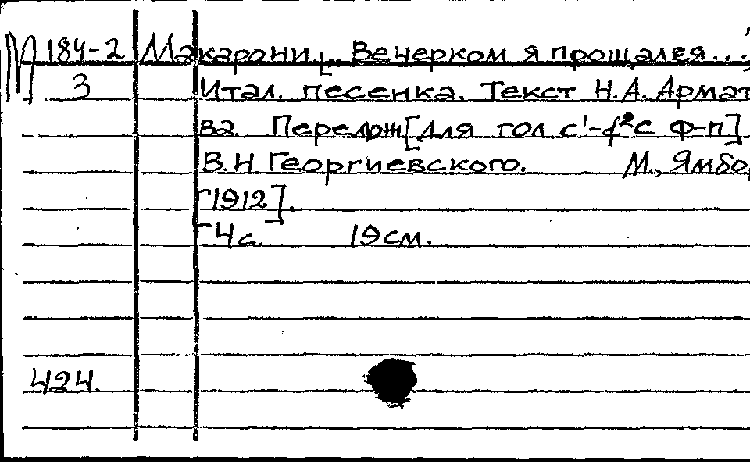 М 184-2 Макарони. „Вечерком я прощался...“
3 Итал. песенка. Текст Н.А. Армат
ва. Перелож[для гол c¹-f² с ф-п]
В.Н. Георгиевского. М., Ямбо,
[1912].
4 с. 19 см.
424.